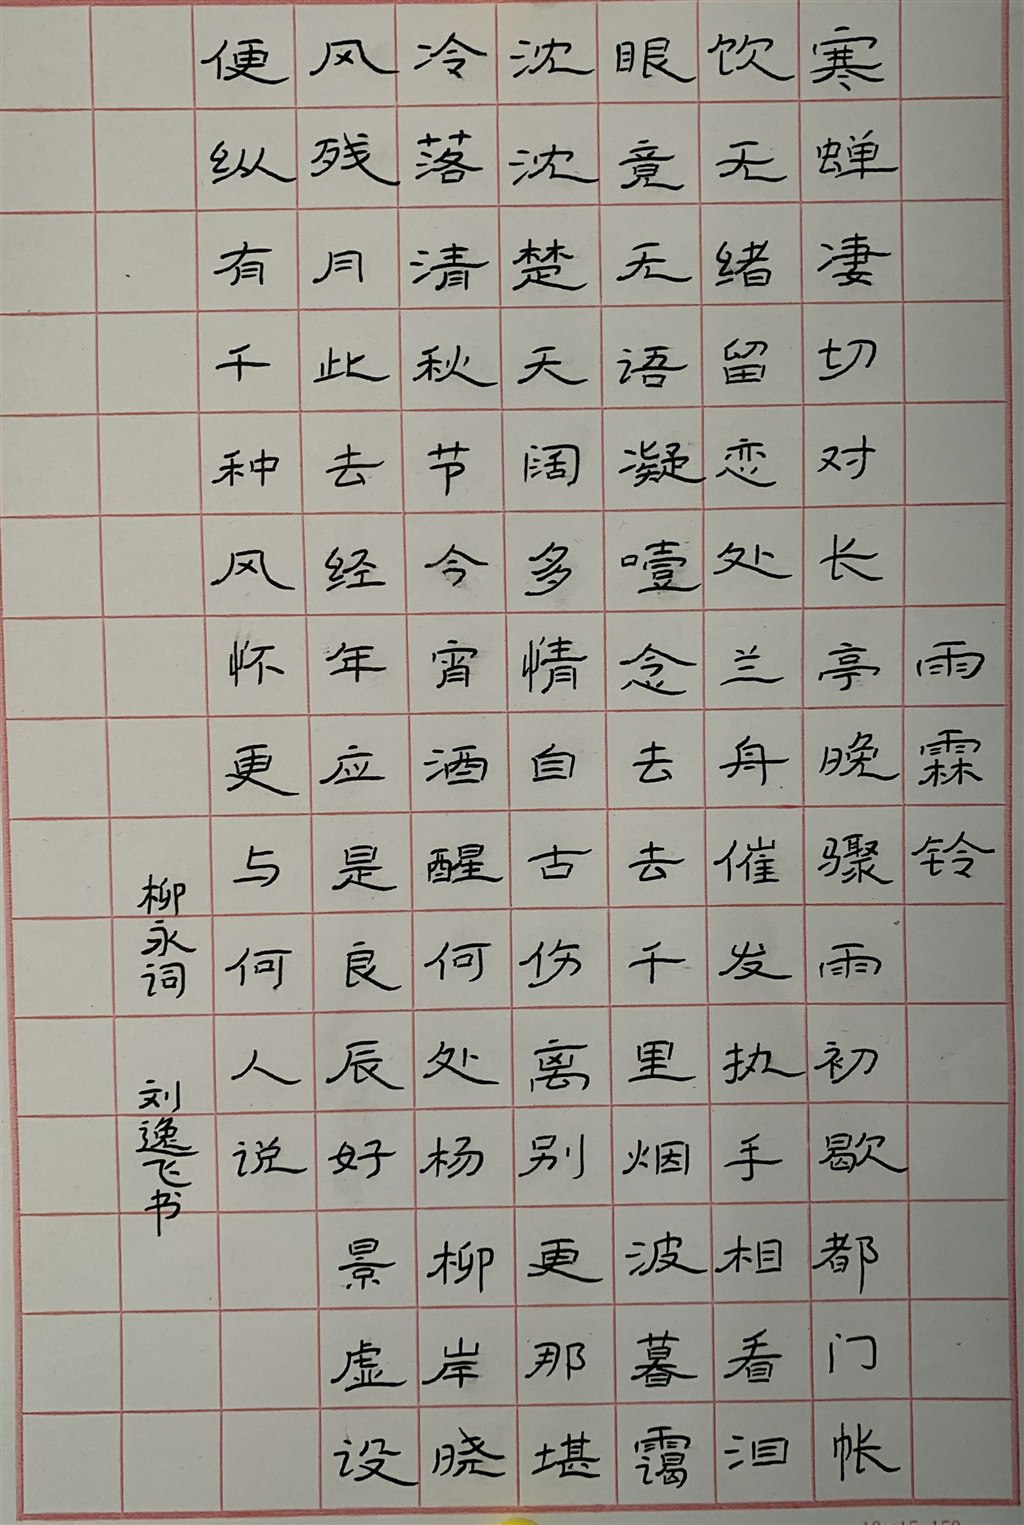 雨霖铃
寒蝉凄切对长亭晚骤雨初歇都门帐
饮无绪留恋处兰舟催发执手相看泪
眼竟无语凝噎念去去千里烟波暮霭
沈沈楚天阔多情自古伤离别更那堪
冷落清秋节今宵酒醒何处杨柳岸晓
风残月此去经年应是良辰好景虚设
便纵有千种风怀更与何人说
柳永词 刘逸飞书